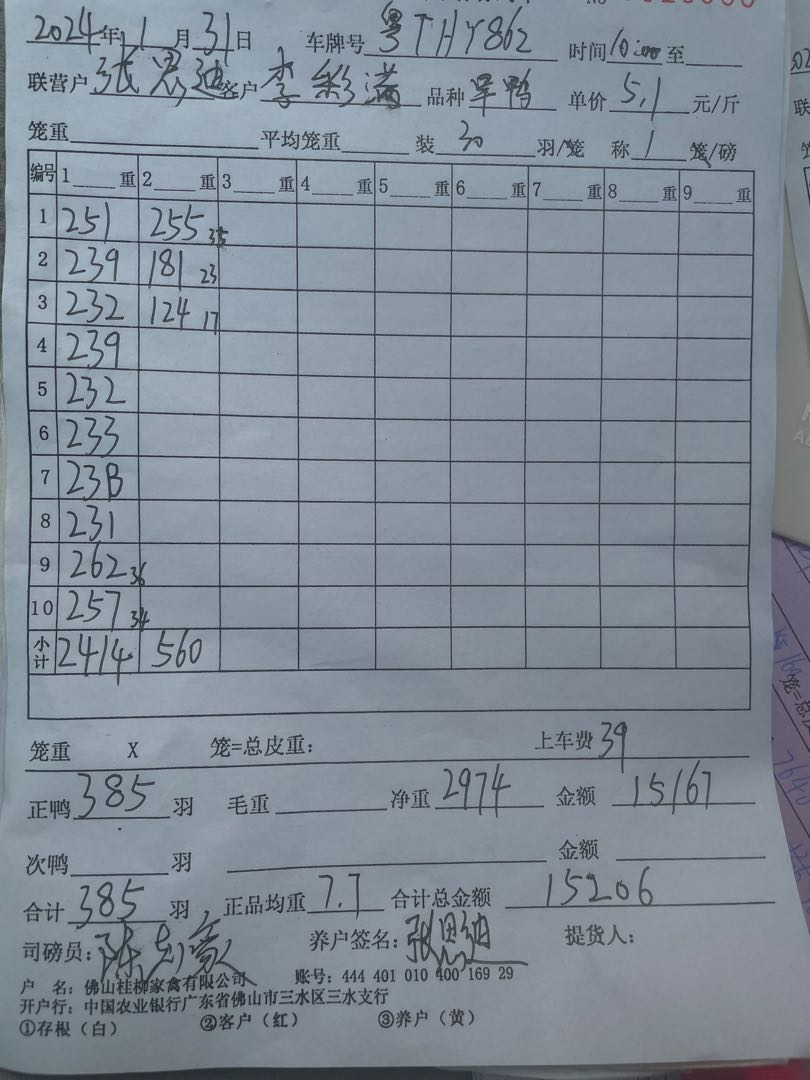 2024年 1 月 31 日 车牌号 粤THY862 时间10:00至
联营户 张思迪 客户 李彩满 品种 旱鸭 单价 5.1 元/斤
笼重 平均笼重 装 30 羽/笼 称 1 笼/磅
编号 1 重 2 重 3 重 4 重 5 重 6 重 7 重 8 重 9 重
1 251 255 35
2 239 181 23
3 232 124 17
4 239
5 232
6 233
7 238
8 231
9 262 36
10 257 34
小计 2414 560
笼重 X 笼=总皮重: 上车费 39
正鸭 385 羽 毛重 净重 2974 金额 15167
次鸭 羽 金额
合计 385 羽 正品均重 7.7 合计总金额 15206
司磅员: 养户签名: 张思迪 提货人:
户 名: 佛山桂柳家禽有限公司 账号: 444 401 010 400 169 29
开户行: 中国农业银行广东省佛山市三水区三水支行
①存根(白) ②客户(红) ③养户(黄)